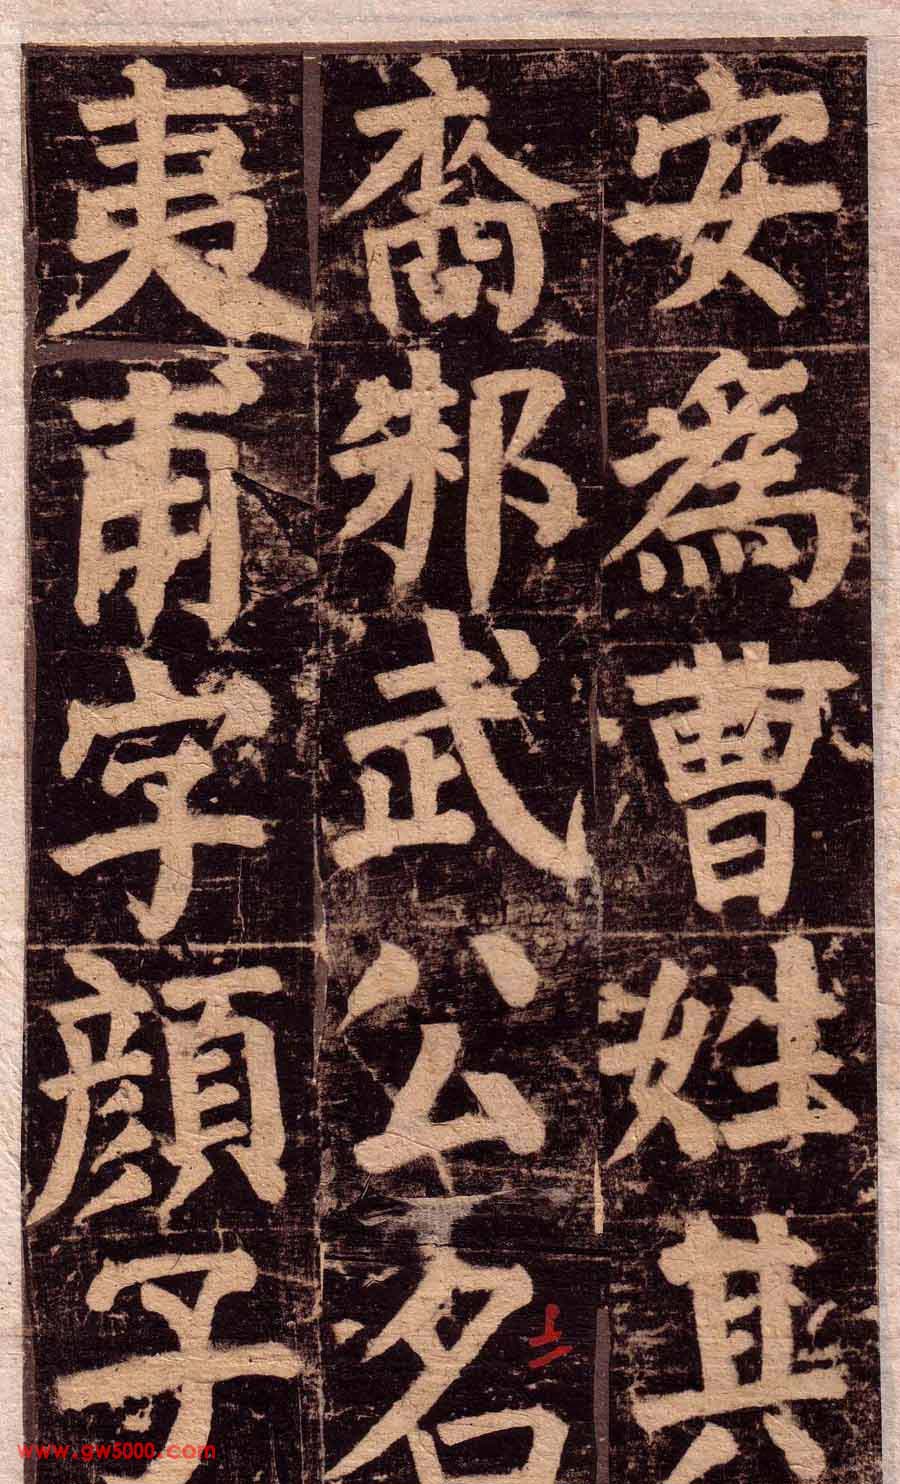 安為曹姓其
裔邾武公名
夷甫字顏子
www.gw5000.com